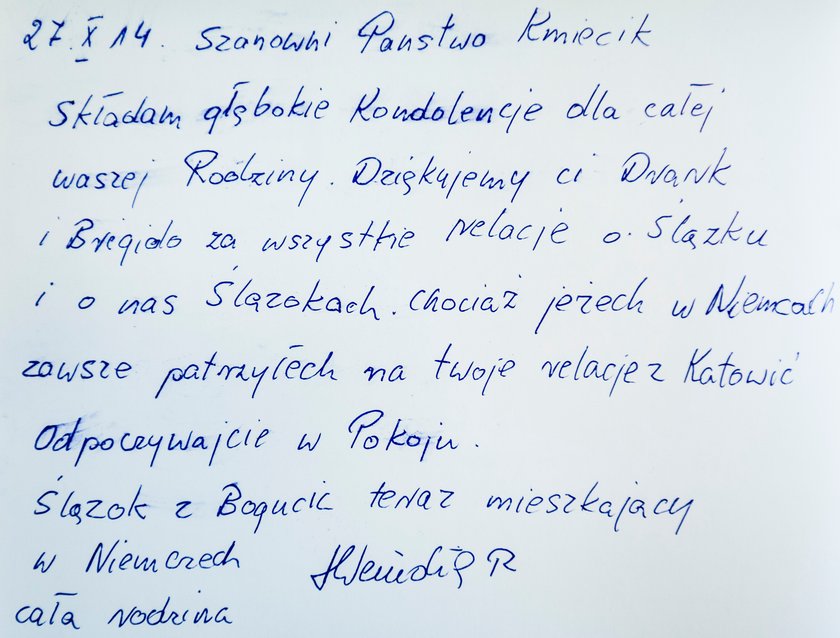 27.X 14. Szanowni Państwo Kmiecik
Składam głębokie Kondolencje dla całej
waszej Rodziny. Dziękujemy ci
i Brigido za wszystkie relacje o Ślązku
i o nas Ślązokach. chociaż jeżech w Niemcach
zawsze patrzyłech na twoje relacje z Katowić
Odpoczywajcie w Pokoju.
Ślązok z Bogucic teraz mieszkający
w Niemczech
cała rodzina